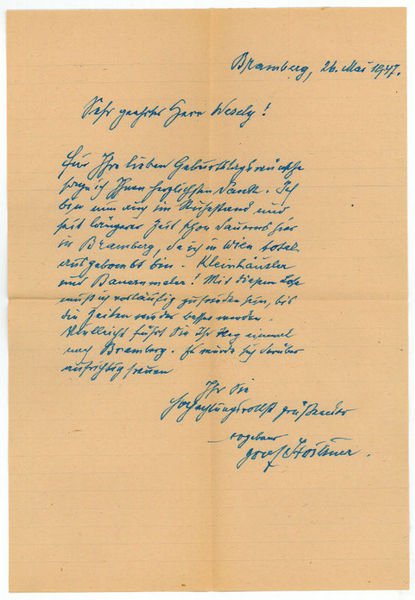 Bramberg, 26. Mai 1947.
Sehr geehrter Herr Wesely!
Für Ihre lieben Geburtstagswünsche
sage ich Ihnen herzlichsten Dank. Ich
bin nun auch im Ruhestand und
seit längerer Zeit schon dauernd hier
in Bramberg, da ich in Wien total
ausgebombt bin. Kleinhäusler
und Bauernmaler! Mit diesem Lose
muß ich vorläufig zufrieden sein, bis
die Zeiten wieder besser werden.
Vielleicht führt Sie Ihr Weg einmal
nach Bramberg. Es würde mich darüber
aufrichtig freuen
Ihr Sie
hochachtungsvollst grüßender
ergebener
Josef